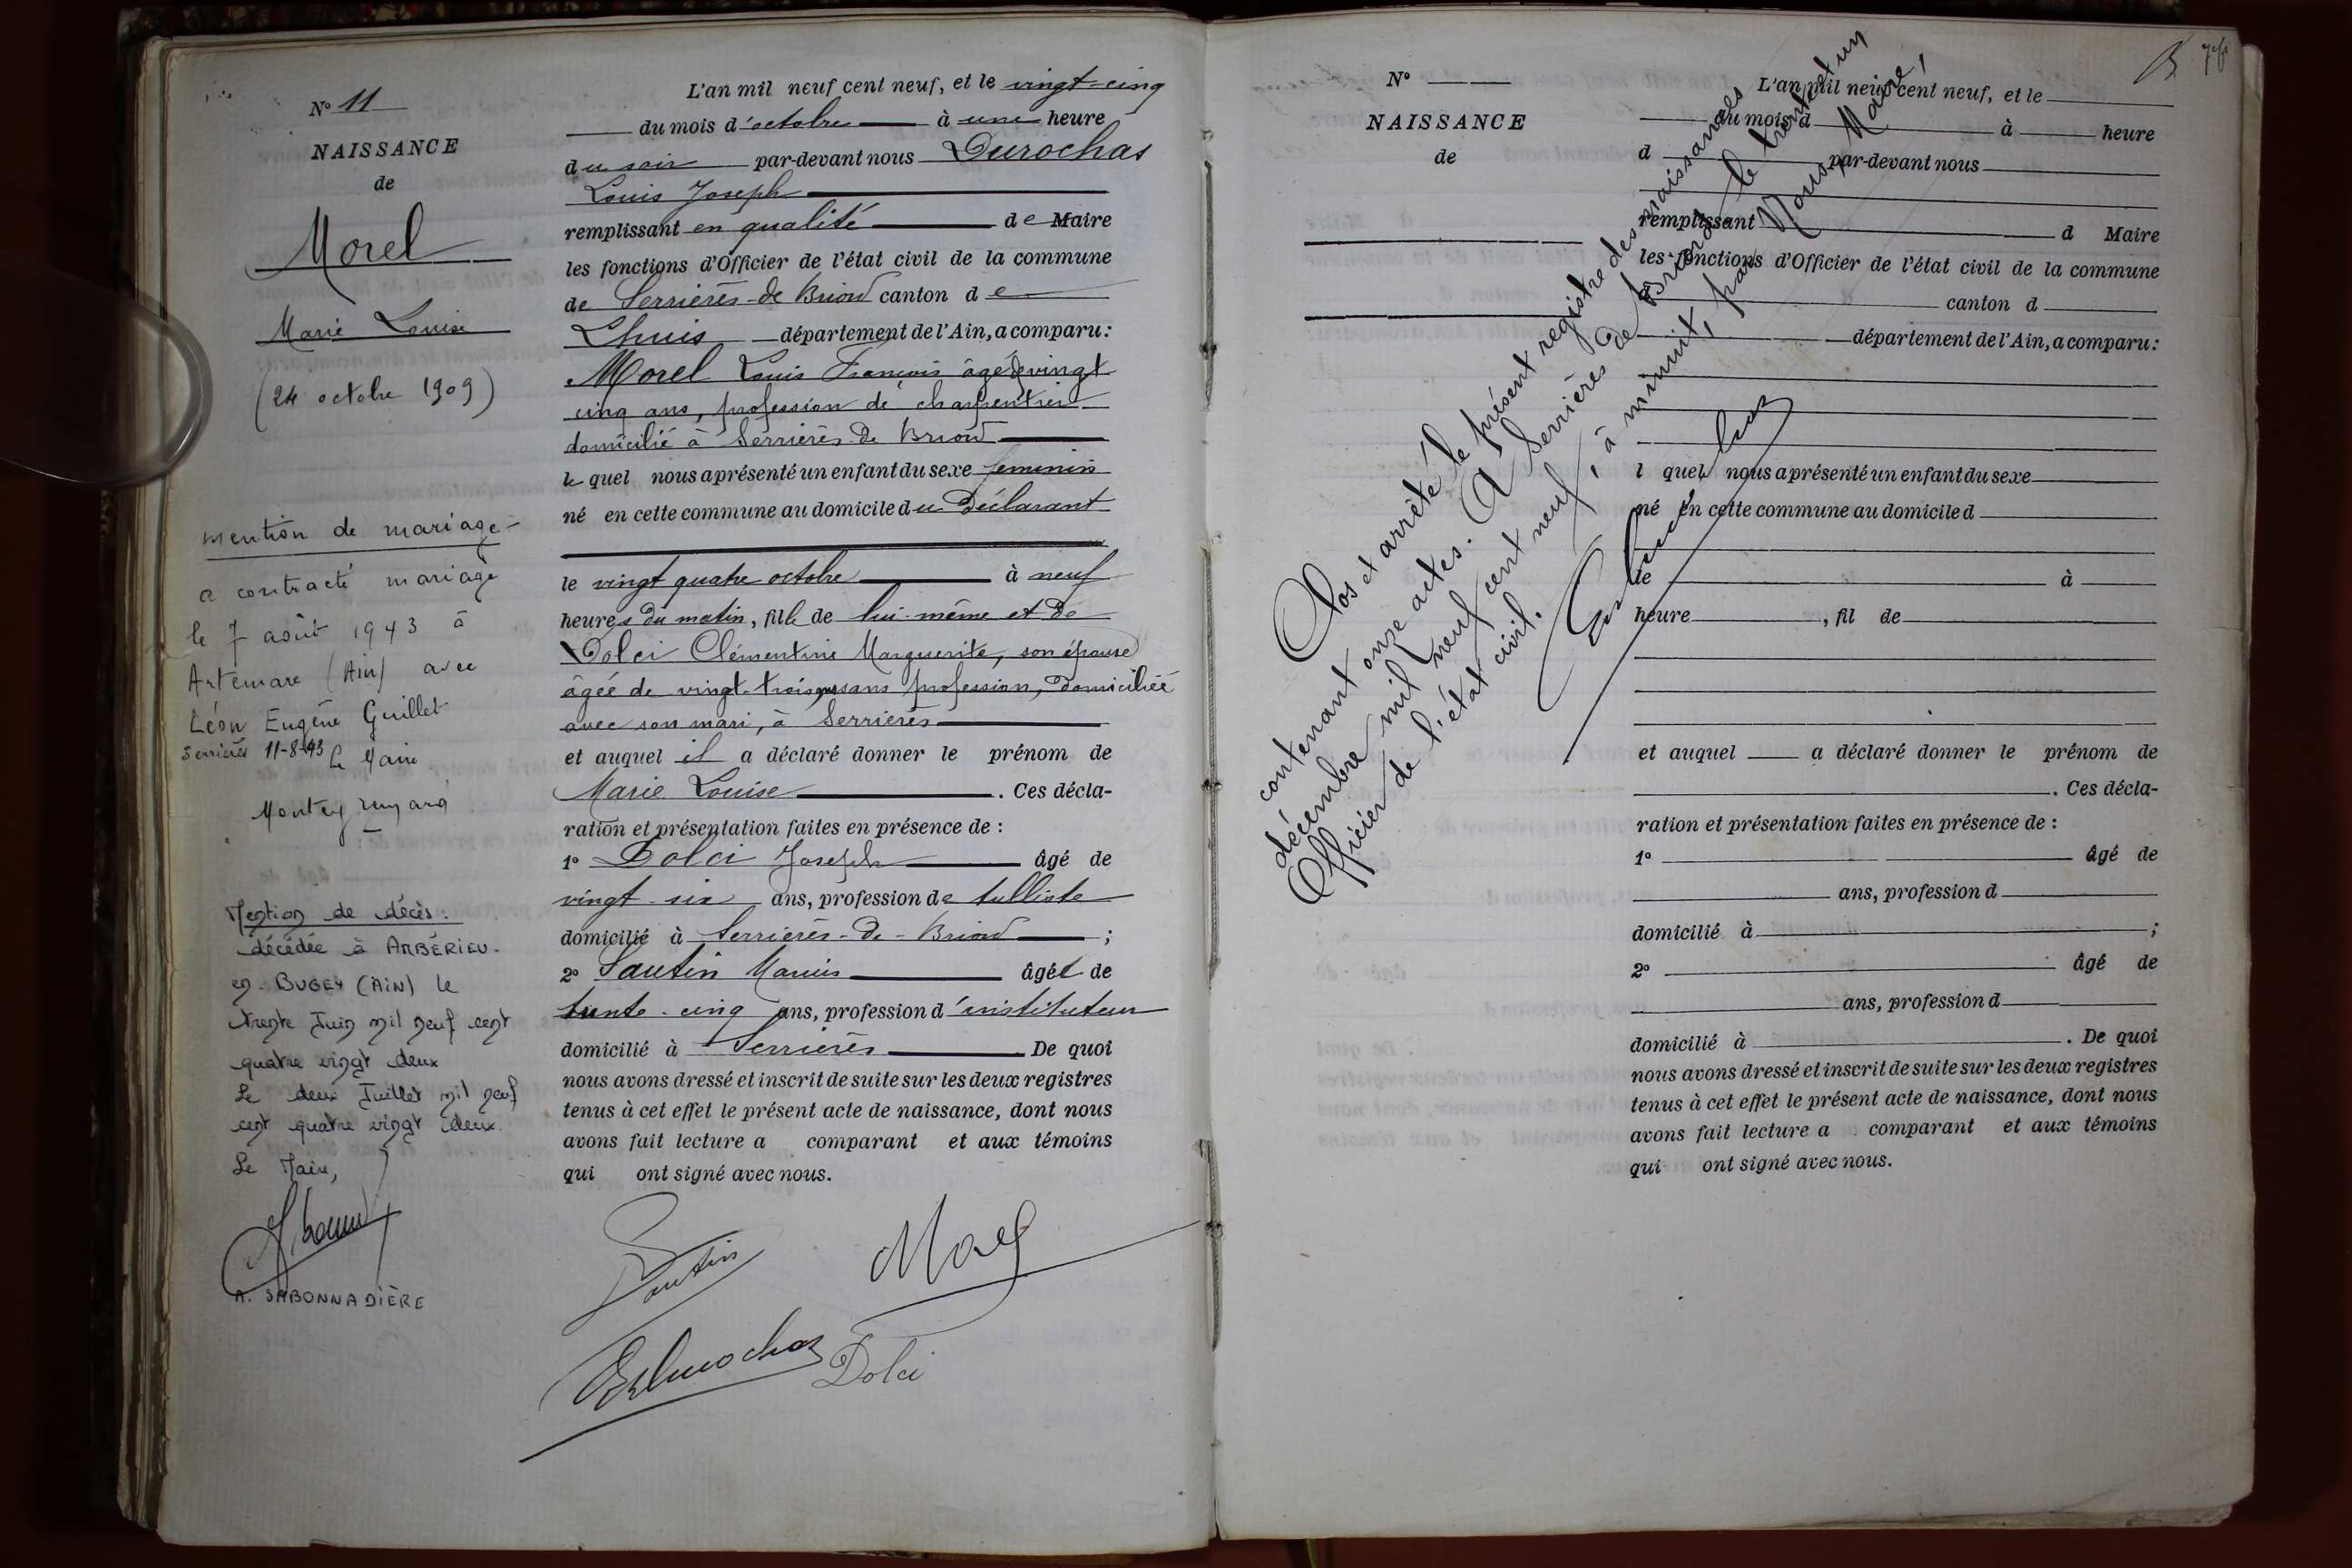 N° 11
NAISSANCE
de
Morel
Marie Louise
(24 octobre 1909)
mention de mariage -
a contracté mariage
le 7 août 1943 à
Artemare (Ain) avec
Léon Eugène Guillet
Serrières 11-8-43 Le Maire
Mention de décès :
décédée à AMBÉRIEU-
en-BUGEY (AIN) le
trente Juin mil neuf cent
quatre vingt deux
Le deux Juillet mil neuf
cent quatre vingt deux.
Le Maire,
A. SABONNADIÈRE
L'an mil neuf cent neuf, et le vingt-cinq
du mois d'octobre à une heure
du soir par-devant nous Durochas
Louis Joseph
remplissant en qualité de Maire
les fonctions d'Officier de l'état civil de la commune
de Serrières-de-Briord canton de
Lhuis département de l'Ain, a comparu :
Morel Louis François âgé de vingt
cinq ans, profession de charpentier
domicilié à Serrières-de-Briord
lequel nous a présenté un enfant du sexe féminin
né en cette commune au domicile du Déclarant
le vingt quatre octobre à neuf
heures du matin, fille de lui-même et de
Dolci Clémentine Marguerite, son épouse
âgée de vingt-trois ans sans profession, domiciliée
avec son mari, à Serrières
et auquel il a déclaré donner le prénom de
Marie Louise. Ces décla-
ration et présentation faites en présence de :
1° Dolci Joseph âgé de
vingt-six ans, profession de tulliste
domicilié à Serrières-de-Briord ;
2° Sautin Marius âgé de
trente-cinq ans, profession d'instituteur
domicilié à Serrières De quoi
nous avons dressé et inscrit de suite sur les deux registres
tenus à cet effet le présent acte de naissance, dont nous
avons fait lecture a comparant et aux témoins
qui ont signé avec nous.
Sautin Morel
Durochas Dolci
76
N°
NAISSANCE
de
L'an mil neuf cent neuf, et le
du mois d à heure
d par-devant nous
remplissant d Maire
les fonctions d'Officier de l'état civil de la commune
d canton d
département de l'Ain, a comparu :
l quel nous a présenté un enfant du sexe
né en cette commune au domicile d
le à
heure , fil de
et auquel a déclaré donner le prénom de
. Ces décla-
ration et présentation faites en présence de :
1° âgé de
ans, profession d
domicilié à ;
2° âgé de
ans, profession d
domicilié à . De quoi
nous avons dressé et inscrit de suite sur les deux registres
tenus à cet effet le présent acte de naissance, dont nous
avons fait lecture a comparant et aux témoins
qui ont signé avec nous.
Clos et arrêté le présent registre des naissances
contenant onze actes. A Serrières de Briord le trente et un
décembre mil neuf cent neuf, à minuit, par Nous, Maire,
Officier de l'état civil.
Durochas